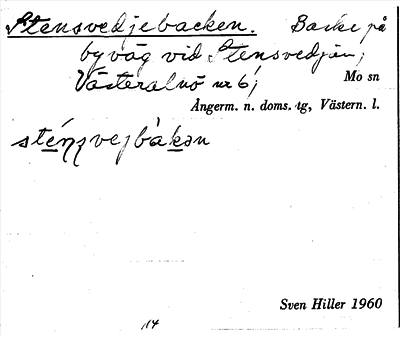 Stensvedjebacken. Backe på
byväg vid Stensvedjan,
Västeralnö nr 6,
Mo sn
Ångerm. n. doms. tg, Västern. l.
sténsvejbàkan
Sven Hiller 1960